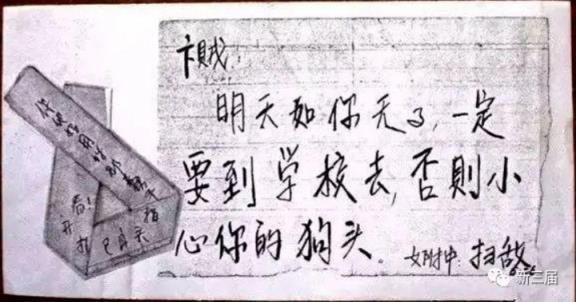 卞賊：
明天如你无事，一定
要到学校去，否則小
心你的狗头．女附中．扫敌
看！
新三届